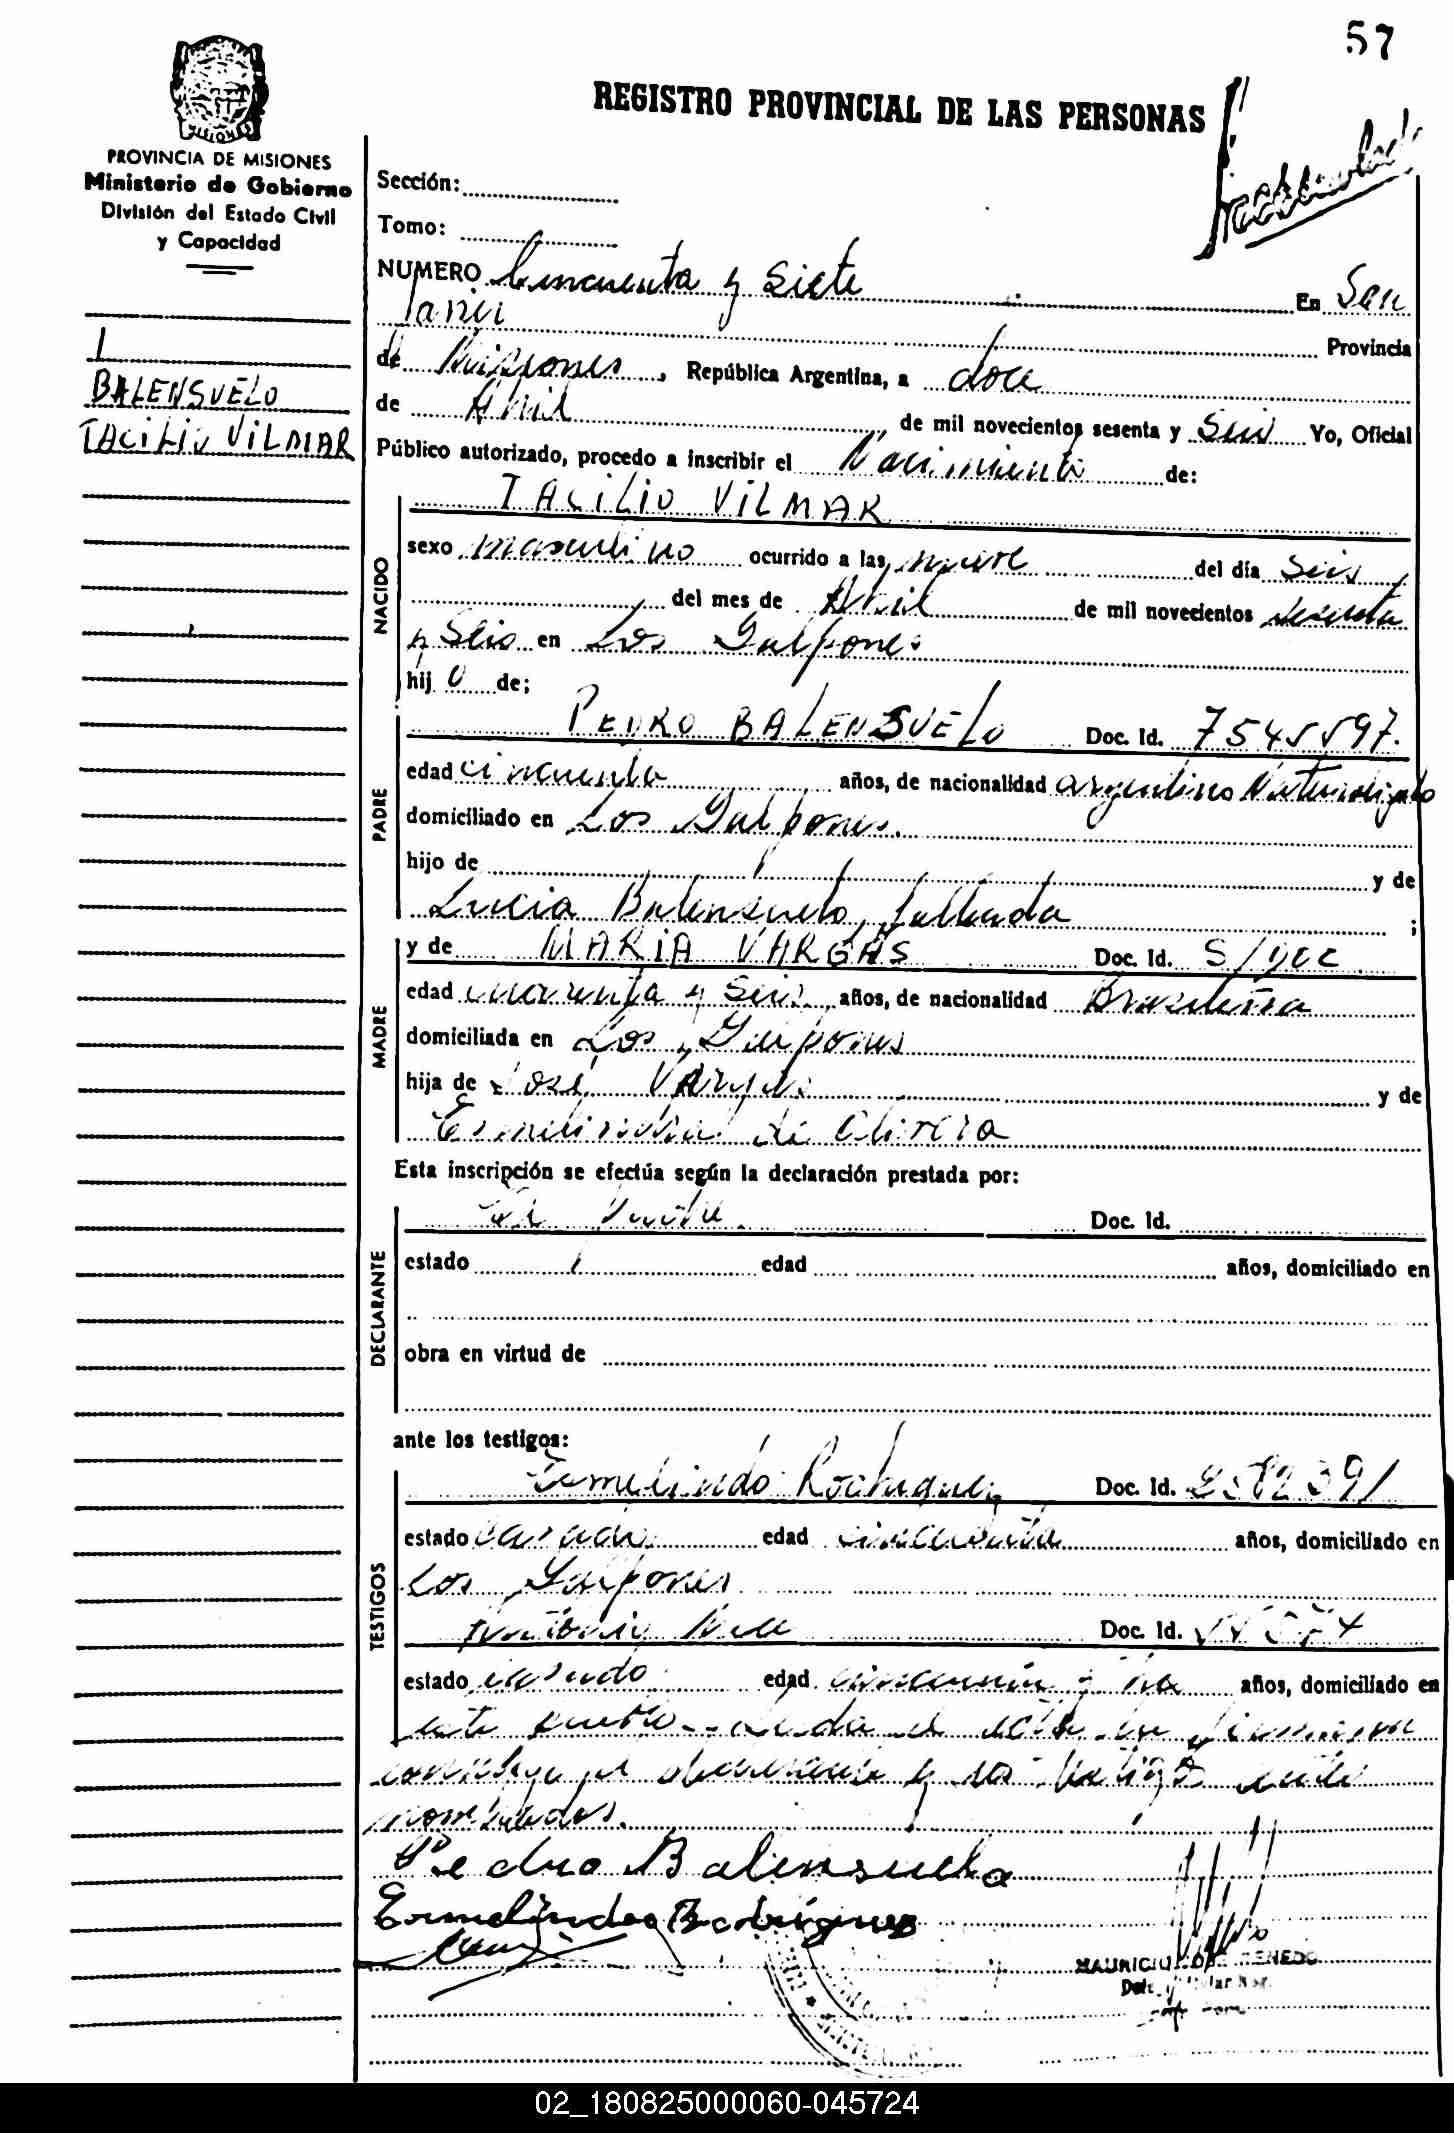 57
REGISTRO PROVINCIAL DE LAS PERSONAS
MISIONES
PROVINCIA DE MISIONES
Ministerio de Gobierno
División del Estado Civil
y Capacidad
1
BALENSUELO
TACILIO VILMAR
Sección:
Tomo:
NUMERO Cincuenta y Siete En San
Javier Provincia
de Misiones, República Argentina, a doce
de Abril de mil novecientos sesenta y Seis Yo, Oficial
Público autorizado, procedo a inscribir el Nacimiento de:
NACIDO
TACILIO VILMAR
sexo masculino ocurrido a las nueve del día Seis
del mes de Abril de mil novecientos sesenta
y Seis en Los Galpones
hij o de;
PADRE
PEDRO BALENSUELO Doc. Id. 7545597.
edad cincuenta años, de nacionalidad argentino Naturalizado
domiciliado en Los Galpones.
hijo de y de
Lucia Balensuelo, fallecida ;
MADRE
y de MARIA VARGAS Doc. Id. S/doc
edad cuarenta y Seis años, de nacionalidad Brasileña
domiciliada en Los Galpones
hija de José Vargas y de
de Olivera
Esta inscripción se efectúa según la declaración prestada por:
DECLARANTE
El padre. Doc. Id.
estado edad años, domiciliado en
obra en virtud de
ante los testigos:
TESTIGOS
Ermelindo Rodriguez Doc. Id. 2582391
estado casado edad cincuenta años, domiciliado en
Los Galpones
Doc. Id.
estado casado edad cincuenta y años, domiciliado en
este pueblo. Leida el acta la firman
conmigo el declarante y los testigos ante
nombrados.
Pedro Balensuelo
Ermelindo Rodriguez
MAURICIO
02_180825000060-045724